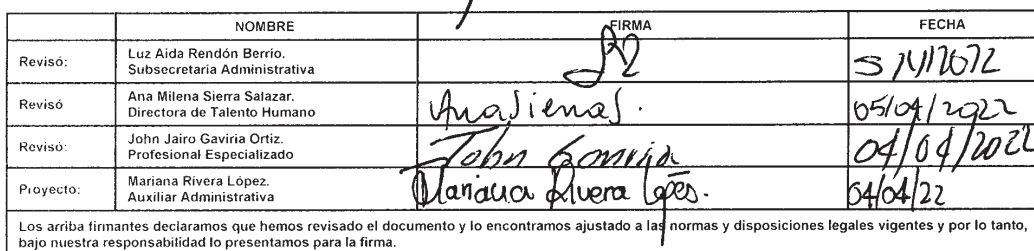 NOMBRE FIRMA FECHA
Revisó: Luz Aida Rendón Berrío.
Subsecretaria Administrativa
Revisó Ana Milena Sierra Salazar.
Directora de Talento Humano AnaSierraS. 05/04/2022
Revisó: John Jairo Gaviria Ortiz.
Profesional Especializado John Gaviria 04/04/2022
Proyecto: Mariana Rivera López.
Auxiliar Administrativa Mariana Rivera López. 04/04/22
Los arriba firmantes declaramos que hemos revisado el documento y lo encontramos ajustado a las normas y disposiciones legales vigentes y por lo tanto,
bajo nuestra responsabilidad lo presentamos para la firma.